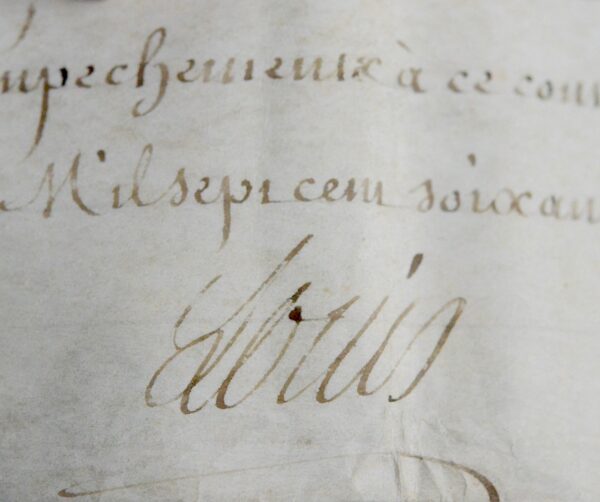 mpechemens à ce con
Mil sept cent soixan
Louis